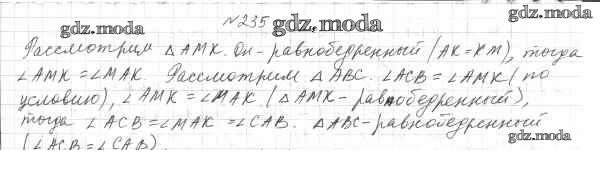 gdz.moda
№ 235 gdz.moda
gdz.moda
Рассмотрим △AMK. Он - равнобедренный (AK=KM), тогда
∠AMK = ∠MAK. Рассмотрим △ABC. ∠ACB = ∠AMK (по
условию), ∠AMK = ∠MAK (△AMK - равнобедренный),
тогда ∠ACB = ∠MAK = ∠CAB. △ABC - равнобедренный
gdz.moda
(∠ACB = ∠CAB)